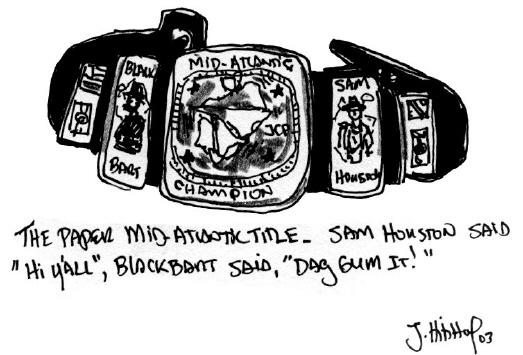 MID-ATLANTIC
BLACK
BART
JCP
CHAMPION
SAM
HOUSTON
THE PAPER MID-ATLANTIC TITLE. SAM HOUSTON SAID
"Hi Y'ALL", BLACK BART SAID, "DAG GUM IT!"
J. HibHop 03